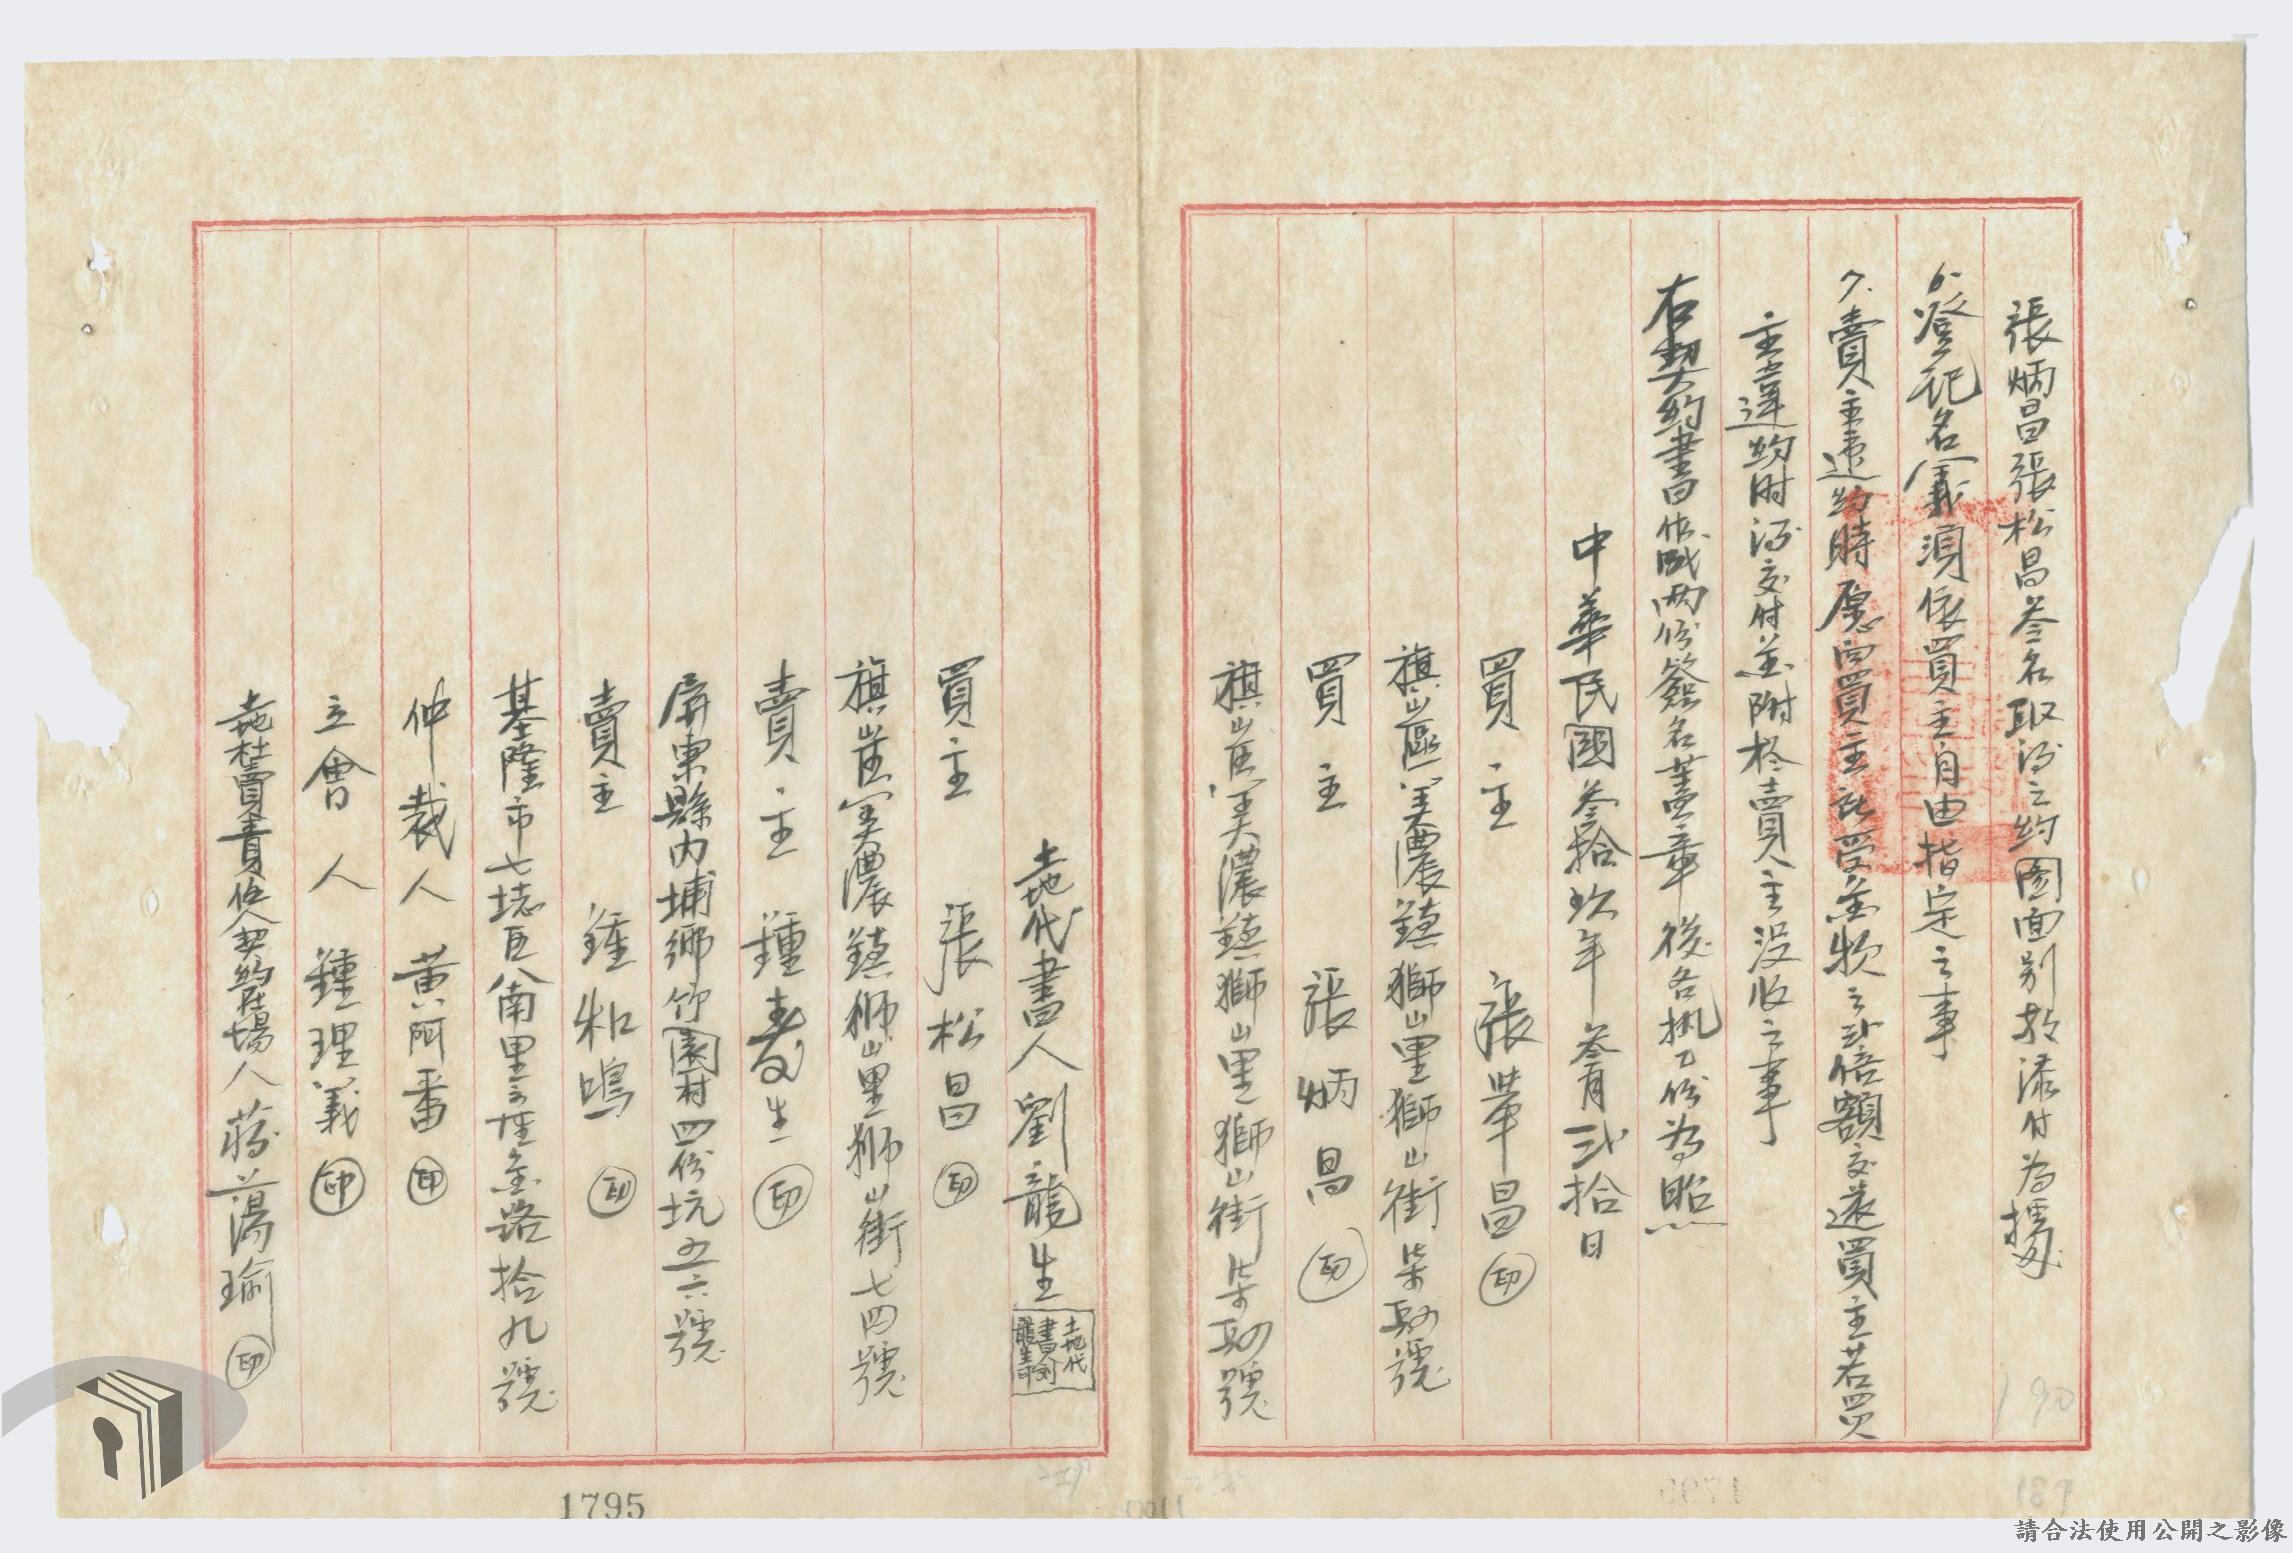 張炳昌張松昌叁名取得之約圖面別按添付為據
6.登記名義須依買主自由指定之事
7.賣主違約時愿向買主所受金額之弍倍額交還買主若買
主違約時須交付並附於賣主沒收之事
右契約書作成兩份簽名蓋章後各執乙份為照
中華民國叁拾玖年叁月弍拾日
買主 張華昌 印
旗山區美濃鎮獅山里獅山街柒四號
買主 張炳昌 印
旗山區美濃鎮獅山里獅山街柒四號
土地代書人劉龍生
土地代
書劉
龍生印
買主 張松昌 印
旗山區美濃鎮獅山里獅山街七四號
賣主 鍾壽生 印
屏東縣內埔鄉竹圍村四份坑五六號
賣主 鍾和鳴 印
基隆市七堵區八南里
路拾九號
仲裁人 黃阿番 印
立會人 鍾理義 印
土地杜賣責任人契約在場人蔣蘊瑜 印
190
187
1795
請合法使用公開之影像